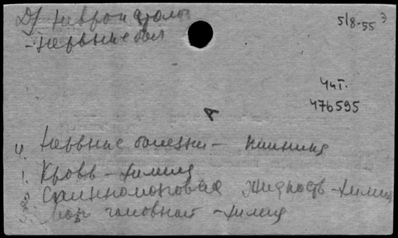 5/8-55 3
- Нервные бол
Чит.
476595
А
4. Нервные болезни - клиника
1. Кровь - химия
2. Спинномозговая жидкость - химия
3. головной - химия